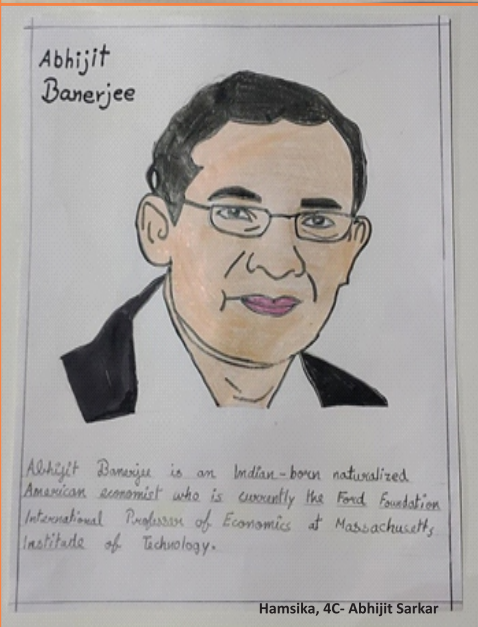 Abhijit
Banerjee
Abhijit Banerjee is an Indian-born naturalized
American economist who is currently the Ford Foundation
International Professor of Economics at Massachusetts
Institute of Technology.
Hamsika, 4C- Abhijit Sarkar